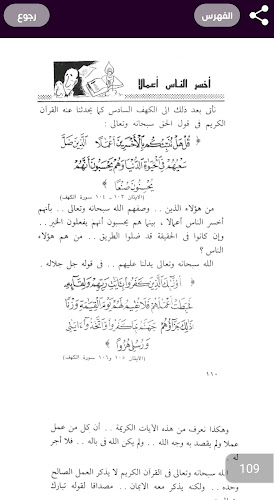 الفهرس
رجوع
أخسر الناس أعمالا
نأتى بعد ذلك الى الكهف السادس كما يحدثنا عنه القرآن
الكريم فى قول الحق سبحانه وتعالى :
﴿ قُلْ هَلْ نُنَبِّئُكُم بِالْأَخْسَرِينَ أَعْمَالًا الَّذِينَ ضَلَّ
سَعْيُهُمْ فِي الْحَيَاةِ الدُّنْيَا وَهُمْ يَحْسَبُونَ أَنَّهُمْ
يُحْسِنُونَ صُنْعًا ﴾
(الايتان ١٠٣ – ١٠٤ سورة الكهف)
من هؤلاء الذين .. وصفهم الله سبحانه وتعالى .. بأنهم
أخسر الناس أعمالا ، بينما هم يحسبون أنهم يفعلون الخير ..
وإن كانوا فى الحقيقة قد ضلوا الطريق .. من هم هؤلاء
الناس ؟
الله سبحانه وتعالى يدلنا عليهم .. فى قوله جل جلاله .
﴿ أُولَٰئِكَ الَّذِينَ كَفَرُوا بِآيَاتِ رَبِّهِمْ وَلِقَائِهِ
فَحَبِطَتْ أَعْمَالُهُمْ فَلَا نُقِيمُ لَهُمْ يَوْمَ الْقِيَامَةِ وَزْنًا
ذَٰلِكَ جَزَاؤُهُمْ جَهَنَّمُ بِمَا كَفَرُوا وَاتَّخَذُوا آيَاتِي
وَرُسُلِي هُزُوًا ﴾
(الايتان ١٠٥ و ١٠٦ سورة الكهف)
١١٠
وهكذا نعرف من هذه الايات الكريمة .. أن كل من عمل
عملا ولم يقصد به وجه الله .. ولم يكن الله فى باله .. فلا أجر
له
الله سبحانه وتعالى فى القرآن الكريم لا يذكر العمل الصالح
وحده .. ولكنه يذكر معه الايمان .. مصداقا لقوله تبارك
109